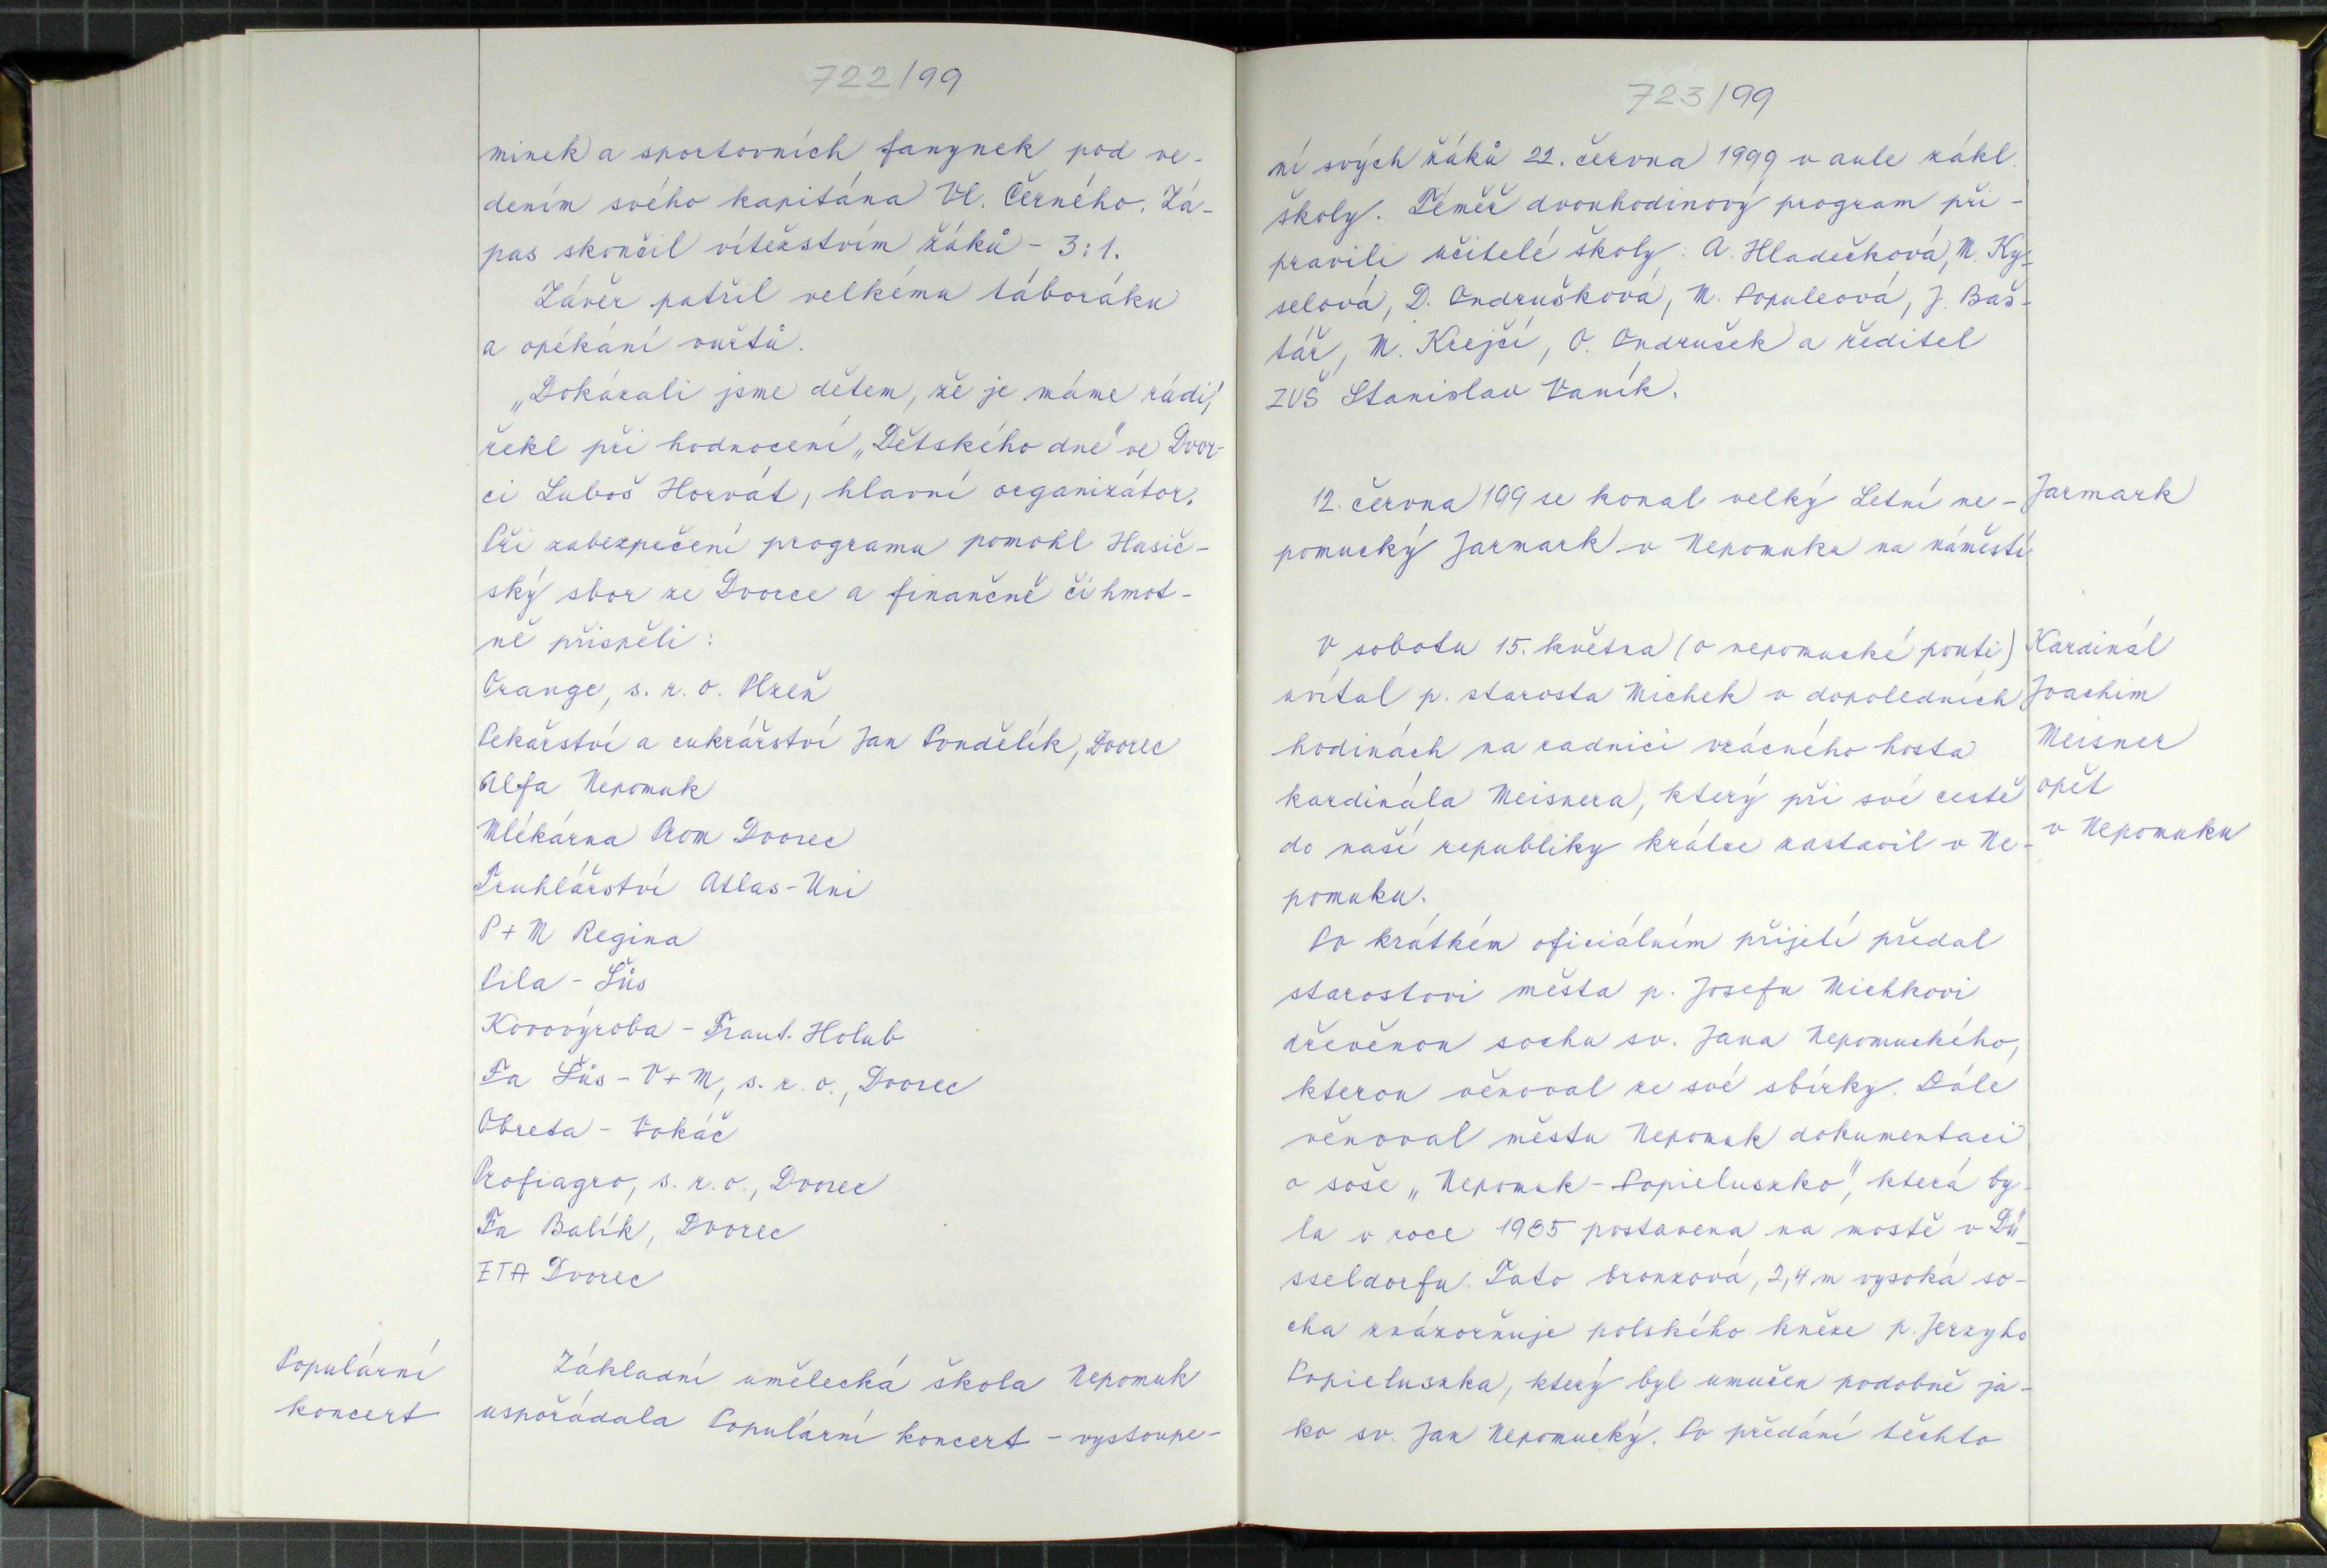 722/99
minek a sportovních fanynek pod ve-
dením svého kapitána Vl. Černého. Zá-
pas skončil vítězstvím žáků - 3:1.
Závěr patřil velkému táboráku
a opékání vuřtů.
„Dokázali jsme dětem, že je máme rádi",
řekl při hodnocení „Dětského dne" ve Dvor-
ci Luboš Horvát, hlavní organizátor.
Při zabezpečení programu pomohl Hasič-
ský sbor ze Dvorce a finančně či hmot-
ně přispěli:
Orange, s. r. o. Plzeň
Pekařství a cukrářství Jan Pondělík, Dvorec
Alfa Nepomuk
Mlékárna Prom Dvorec
Truhlářství Atlas-Uni
P+M Regina
Pila - Šůs
Kovovýroba - Frant. Holub
Fa Šůs - V+M, s. r. o., Dvorec
Obreta - Vokáč
Profiagro, s. r. o., Dvorec
Fa Balík, Dvorec
ETA Dvorec
Populární
koncert
Základní umělecká škola Nepomuk
uspořádala Populární koncert - vystoupe-
723/99
ní svých žáků 22. června 1999 v aule zákl.
školy. Téměř dvouhodinový program při-
pravili učitelé školy: A. Hladečková, M. Ky-
selová, D. Ondrušková, M. Populeová, J. Baš-
tář, M. Krejčí, O. Ondrušek a ředitel
ZUŠ Stanislav Vaník.
12. června 199 se konal velký Letní ne-
pomucký Jarmark v Nepomuku na náměstí
Jarmark
V sobotu 15. května (o nepomucké pouti)
uvítal p. starosta Michek v dopoledních
hodinách na radnici vzácného hosta
kardinála Meisnera, který při své cestě
do naší republiky krátce zastavil v Ne-
pomuku.
Kardinál
Joachim
Meisner
opět
v Nepomuku
Po krátkém oficiálním přijetí předal
starostovi města p. Josefu Michkovi
dřevěnou sochu sv. Jana Nepomuckého,
kterou věnoval ze své sbírky. Dále
věnoval městu Nepomuk dokumentaci
o soše „Nepomuk-Popieluszko", která by-
la v roce 1985 postavena na mostě v Dü-
sseldorfu. Tato bronzová, 2,4 m vysoká so-
cha znázorňuje polského kněze p. Jerzyho
Popieluszka, který byl umučen podobně ja-
ko sv. Jan Nepomucký. Po předání těchto